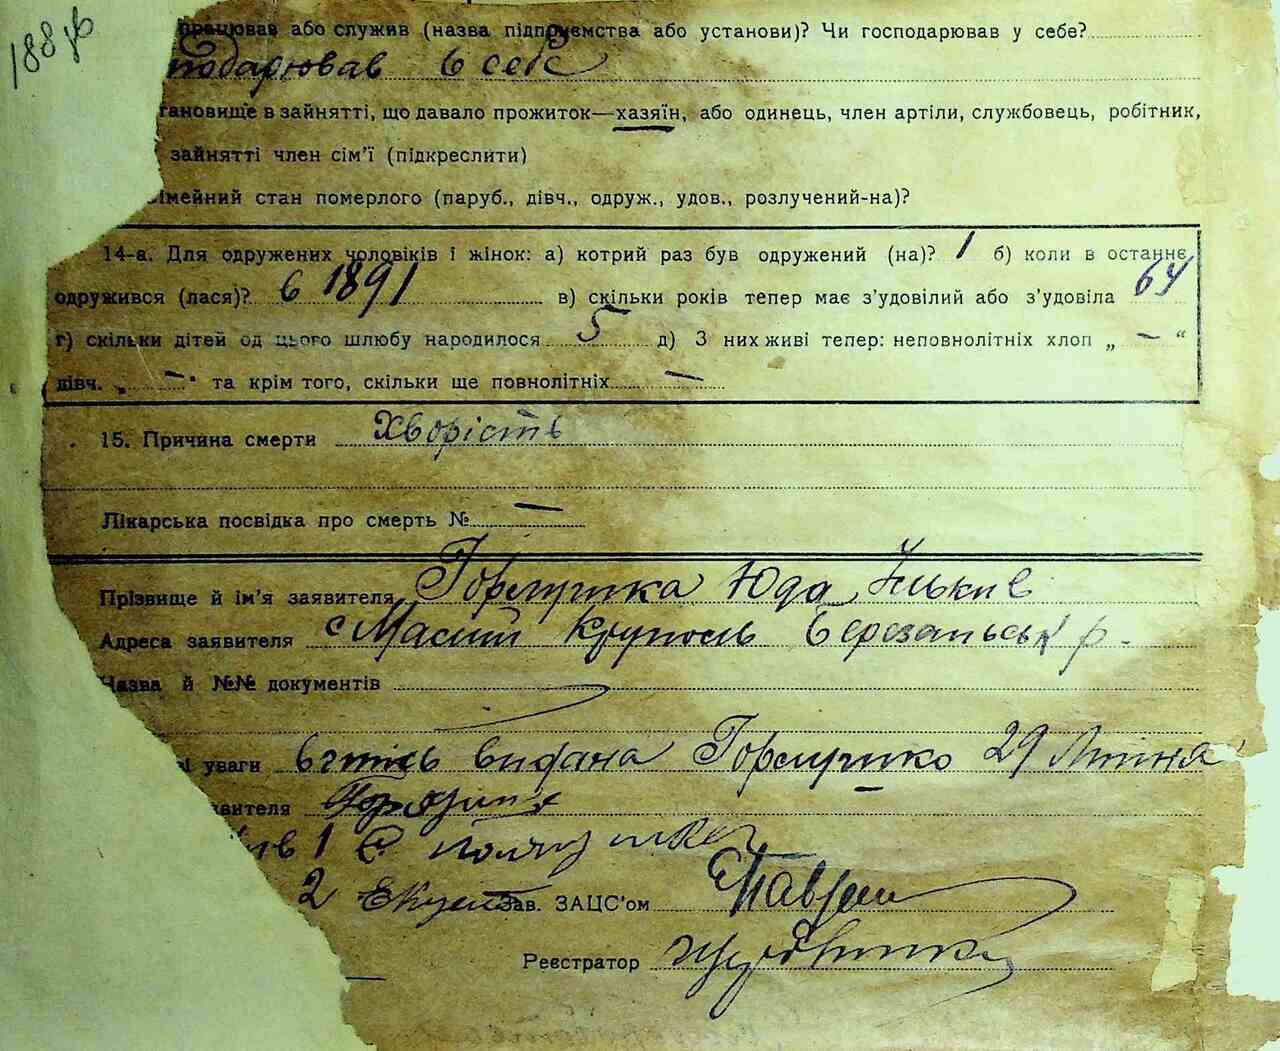 188 зв
працював або служив (назва підприємства або установи)? Чи господарював у себе?
подарював в себе
тановище в зайнятті, що давало прожиток—хазяїн, або одинець, член артілі, службовець, робітник,
зайнятті член сім'ї (підкреслити)
імейний стан померлого (паруб., дівч., одруж., удов., розлучений-на)?
14-а. Для одружених чоловіків і жінок: а) котрий раз був одружений (на)? 1 б) коли в останнє
одружився (лася)? в 1891 в) скільки років тепер має з'удовілий або з'удовіла 64
г) скільки дітей од цього шлюбу народилося 5 д) З них живі тепер: неповнолітніх хлоп „ — "
дівч. „ — " та крім того, скільки ще повнолітніх —
15. Причина смерти Хворість
Лікарська посвідка про смерть № —
Прізвище й ім'я заявителя Юда
Адреса заявителя с Малий Круполь Березанськ р.
Назва й №№ документів
уваги видана 29 Липня
явителя
1
2 Зав. ЗАЦС'ом
Реєстратор